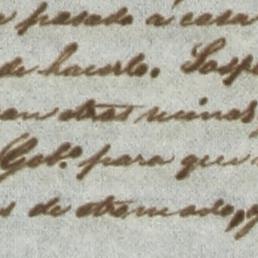 pasado á casa
de hacerlo. Sosp
an otras reinas
Gob.º para que
s de otro modo, y